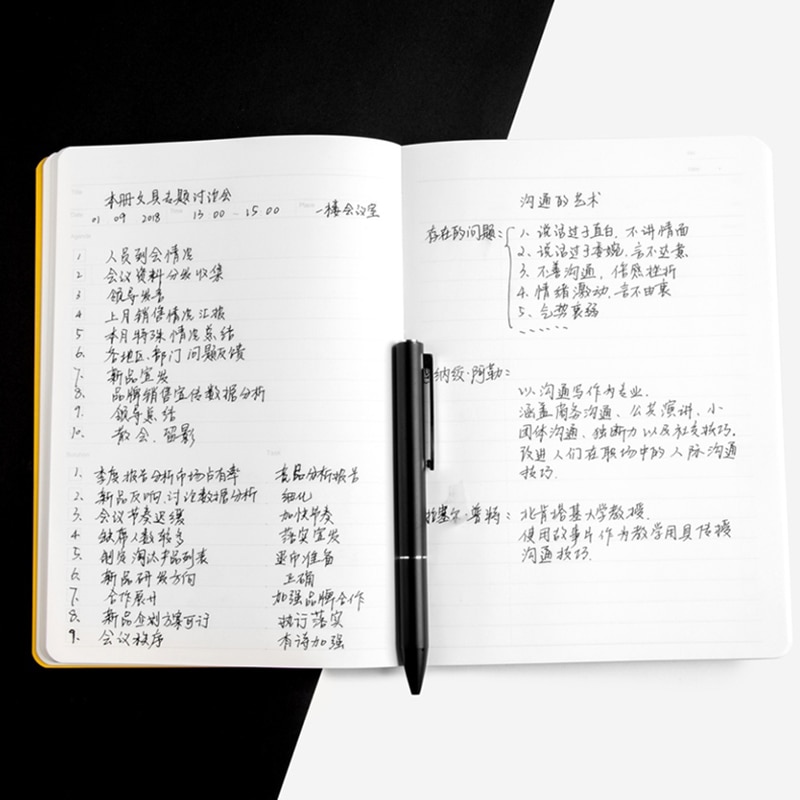 本册文具专题讨论会
01 09 2018 13 00 - 15 00 一楼会议室
1 人员到会情况
2 会议资料分发收集
3 领导发言
4 上月销售情况汇报
5 本月特殊情况总结
6. 各地区、部门问题反馈
7. 新品宣发
8. 品牌销售宣传数据分析
9. 领导总结
10. 散会、留影
1. 季度报告分析市场占有率 竞品分析报告
2. 新品反响、讨论数据分析 细化
3. 会议节奏迟缓 加快节奏
4. 缺席人数较多 落实宣发
5. 制定淘汰产品列表 退市准备
6. 新品研发方向 正确
7. 合作展开 加强品牌合作
8. 新品企划方案可订 执行落实
9. 会议秩序 有待加强
沟通的艺术
存在的问题:
1、说话过于直白,不讲情面
2、说话过于委婉,言不达意
3. 不善沟通,倍感挫折
4. 情绪激动,言不由衷
5、气势衰弱
……
纳级·阿勒:
以沟通写作为专业.
涵盖商务沟通、公共演讲、小
团体沟通、独断力以及社交技巧.
改进人们在职场中的人际沟通
技巧.
拉塞尔·普特: 北肯塔基大学教授.
使用故事片作为教学用具传授
沟通技巧.